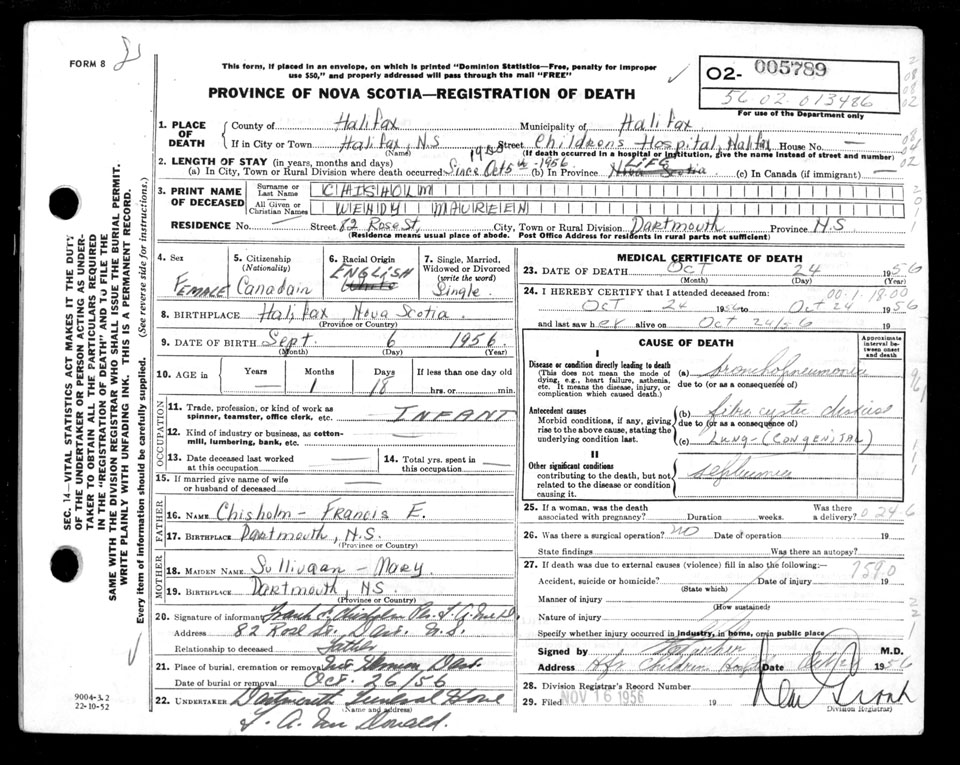 FORM 8
This form, if placed in an envelope, on which is printed "Dominion Statistics—Free, penalty for improper
use $50," and properly addressed will pass through the mail "FREE"
PROVINCE OF NOVA SCOTIA—REGISTRATION OF DEATH
02- 005789
56 02 013486
For use of the Department only
1. PLACE OF DEATH
County of Halifax Municipality of Halifax
If in City or Town Halifax, N.S Street Childrens Hospital, Halifax House No. —
(Name) (If death occurred in a hospital or institution, give the name instead of street and number)
2. LENGTH OF STAY (in years, months and days)
(a) In City, Town or Rural Division where death occurred Since Oct 5th 1956. (b) In Province LIFE Nova Scotia (c) In Canada (if immigrant) —
3. PRINT NAME OF DECEASED
Surname or Last Name CHISHOLM
All Given or Christian Names WENDY MAUREEN
RESIDENCE No. — Street 82 Rose St, City, Town or Rural Division Dartmouth Province N.S
(Residence means usual place of abode. Post Office Address for residents in rural parts not sufficient)
SEC. 14—VITAL STATISTICS ACT MAKES IT THE DUTY
OF THE UNDERTAKER OR PERSON ACTING AS UNDER-
TAKER TO OBTAIN ALL THE PARTICULARS REQUIRED
IN THE "REGISTRATION OF DEATH" AND TO FILE THE
SAME WITH THE DIVISION REGISTRAR WHO SHALL ISSUE THE BURIAL PERMIT.
WRITE PLAINLY WITH UNFADING INK. THIS IS A PERMANENT RECORD.
Every item of information should be carefully supplied. (See reverse side for instructions.)
4. Sex
FEMALE
5. Citizenship
(Nationality)
Canadain
6. Racial Origin
ENGLISH
White
7. Single, Married,
Widowed or Divorced
(write the word)
Single
8. BIRTHPLACE Halifax, Nova Scotia.
(Province or Country)
9. DATE OF BIRTH Sept. 6 1956.
(Month) (Day) (Year)
10. AGE in
Years Months Days If less than one day
— 1 18 hrs. or min.
OCCUPATION
11. Trade, profession, or kind of work as
spinner, teamster, office clerk. etc. INFANT
12. Kind of industry or business, as cotton-
mill, lumbering, bank, etc. —
13. Date deceased last worked
at this occupation —
14. Total yrs. spent in
this occupation —
15. If married give name of wife
or husband of deceased —
FATHER
16. NAME Chisholm - Francis E.
17. BIRTHPLACE Dartmouth, N.S.
(Province or Country)
MOTHER
18. MAIDEN NAME Sullivaan - Mary.
19. BIRTHPLACE Dartmouth, NS.
(Province or Country)
20. Signature of informant
Address 82 Rose St. Dart. N.S.
Relationship to deceased father
21. Place of burial, cremation or removal Dart.
Date of burial or removal Oct. 26/56
22. UNDERTAKER Dartmouth Funeral Home
(Name and address)
9004-3.2
22-10-52
MEDICAL CERTIFICATE OF DEATH
23. DATE OF DEATH Oct 24 1956
(Month) (Day)
24. I HEREBY CERTIFY that I attended deceased from: 00-1-18-00
Oct 24 1956 to Oct 24 1956
and last saw her alive on Oct 24/56 19
CAUSE OF DEATH
Approximate
interval be-
tween onset
and death
I
Disease or condition directly leading to death
(This does not mean the mode of
dying, e.g., heart failure, asthenia,
etc. It means the disease, injury, or
complication which caused death.)
(a) bronchopneumonia
due to (or as a consequence of)
Antecedent causes
Morbid conditions, if any, giving
rise to the above cause, stating the
underlying condition last.
(b) fibro cystic disease
due to (or as a consequence of)
(c) LUNG - (CONGENITAL)
II
Other significant conditions
contributing to the death, but not
related to the disease or condition
causing it.
25. If a woman, was the death
associated with pregnancy? Duration weeks. Was there
a delivery? 024-6
26. Was there a surgical operation? NO Date of operation 19
State findings Was there an autopsy?
27. If death was due to external causes (violence) fill in also the following:— 7590
Accident, suicide or homicide? Date of injury 19
(State which)
Manner of injury
(How sustained)
Nature of injury
Specify whether injury occurred in industry, in home, or in public place
Signed by M.D.
Address Hfx Children Hospital Date Oct 24 1956
28. Division Registrar's Record Number
29. Filed NOV 16 1956 19
Division Registrar)